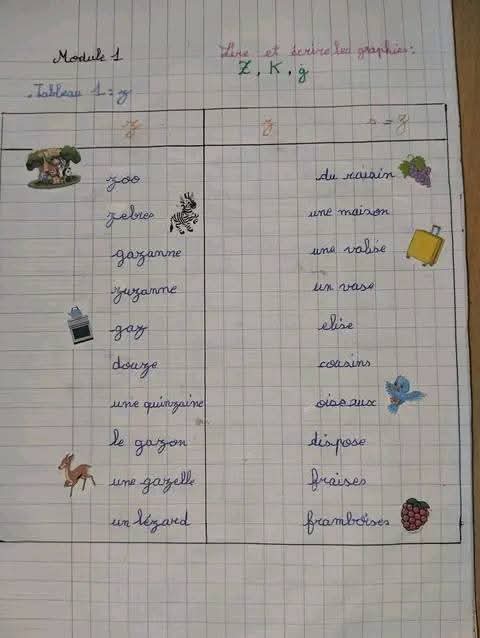 Module 1
Lire et écrire les graphies:
Z, K, ġ
. Tableau 1 = z
z z s = z
zoo du raisin
zebres une maison
gazanne une valise
zuzanne un vase
gaz elise
douze cousins
une quinzaine oiseaux
le gazon dispose
une gazelle fraises
un lézard framboises